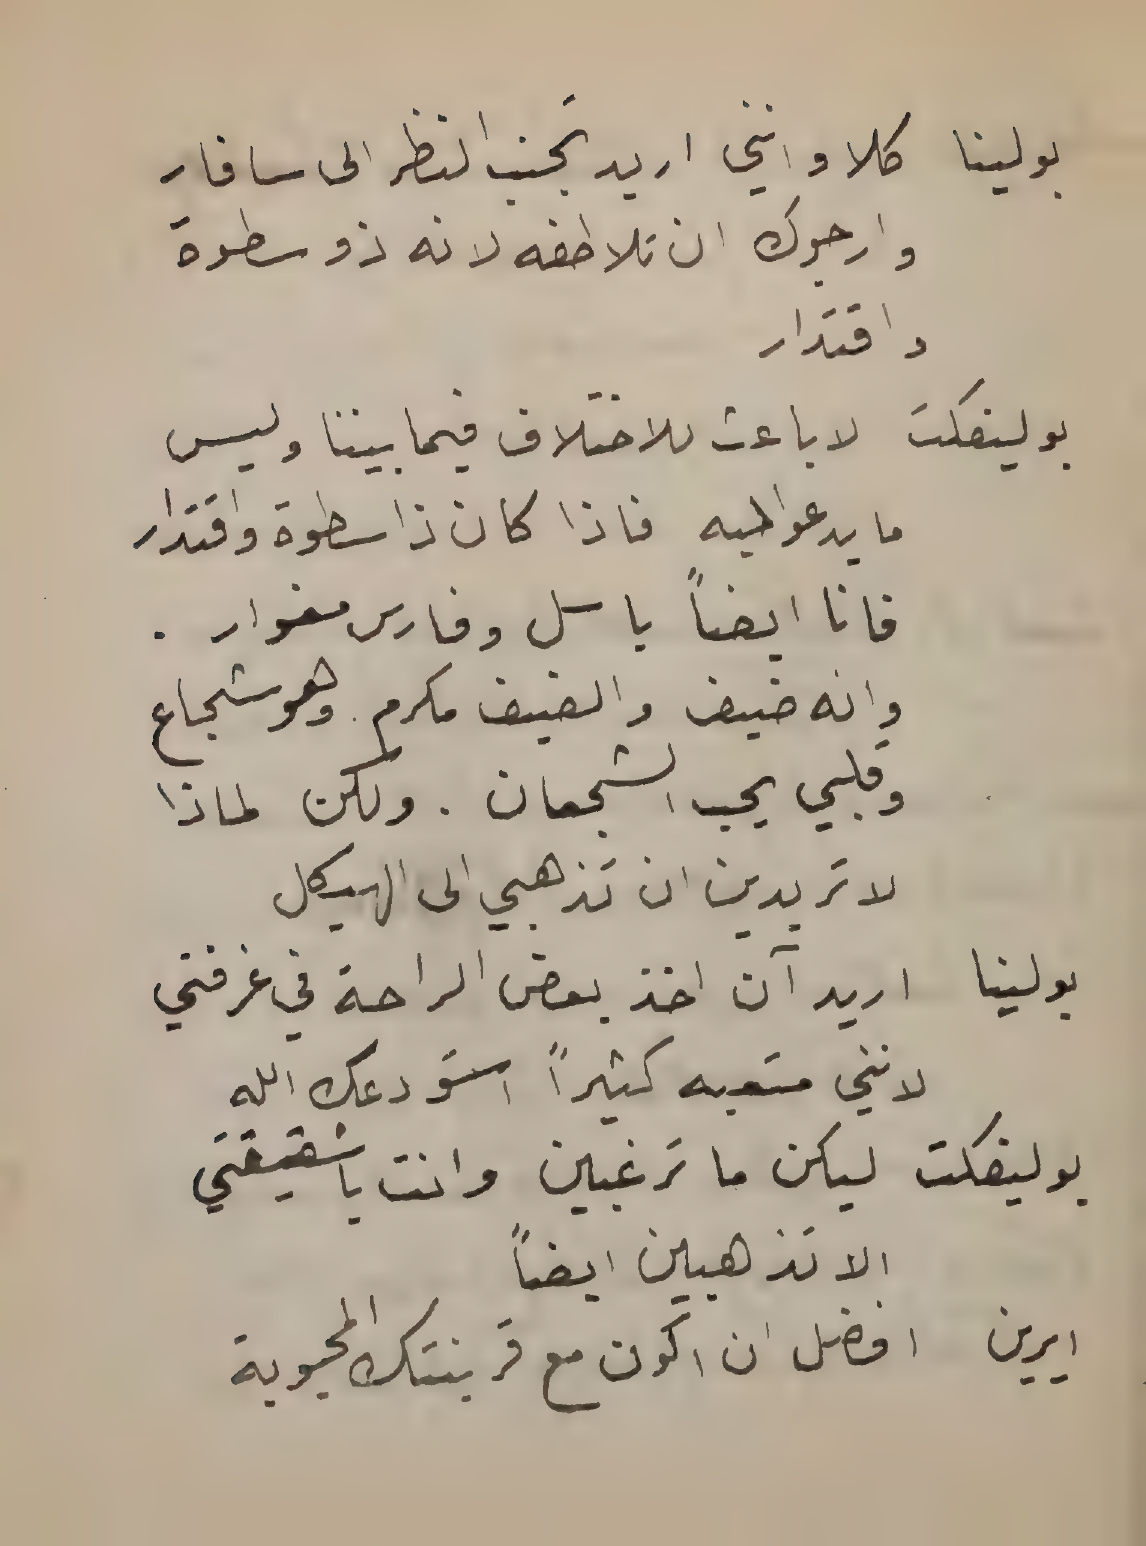 بولينا كلا وانني اريد تجنب النظر الى سافار
وارجوك ان تلاطفه لانه ذو سطوة
واقتدار
بوليفكت لا باعث للاختلاف فيما بيننا وليس
ما يدعو اليه فاذا كان ذا سطوة واقتدار
فانا ايضاً باسل وفارس مغوار .
وانه ضيف والضيف مكرم . وهو شجاع
وقلبي يحب الشجعان . ولكن لماذا
لا تريدين ان تذهبي الى الهيكل
بولينا اريد آن اخذ بعض الراحة في غرفتي
لانني متعبه كثيراً استودعك الله
بوليفكت ليكن ما ترغبين وانت يا شقيقتي
الا تذهبين ايضاً
ايرين افضل ان اكون مع قرينتك المحبوبة